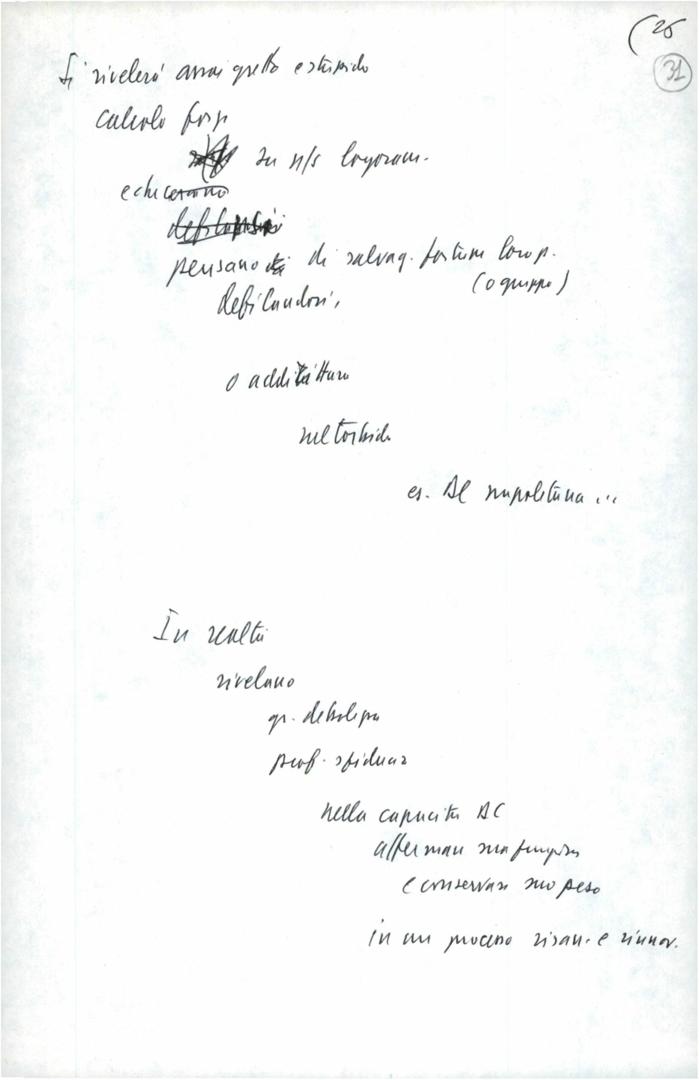 (25
31
Si rivelerà assai gretto e stupido
calcolo forze
su n/s logoram.
e chi cercano
pensano di salvag. fortune loro p.
(o gruppo)
defilandosi,
o addirittura
nel torbido
es. DC napoletana ...
In realtà
rivelano
gr. debolezza
prof. sfiducia
nella capacità DC
affermare sua funzione
e conservare suo peso
in un processo risan. e rinnov.